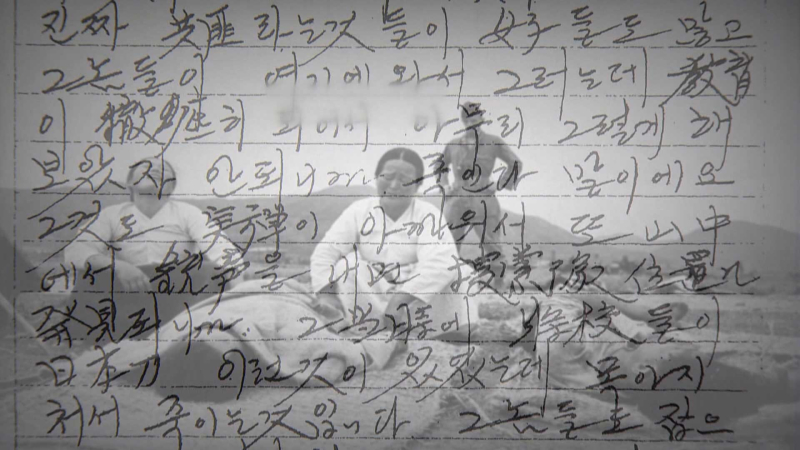 진짜 共匪라는것들이 女子들도 많고
그놈들이 여기에 와서 그러는데 敎育
이 徹底히 되어서 아무리 그렇게 해
보았자 안되니까 죽인다 말이에요
그것도 実弾이 아까워서 또 山中
에서 銃声을 내면 搜索隊 位置가
発見되니까. 그 将校들이
日本刀 이런것이 있었는데 목아지
처서 죽이는것입니다. 그놈들도 잡으